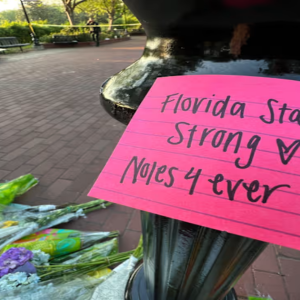 Florida Sta
Strong ♡
Noles 4 ever